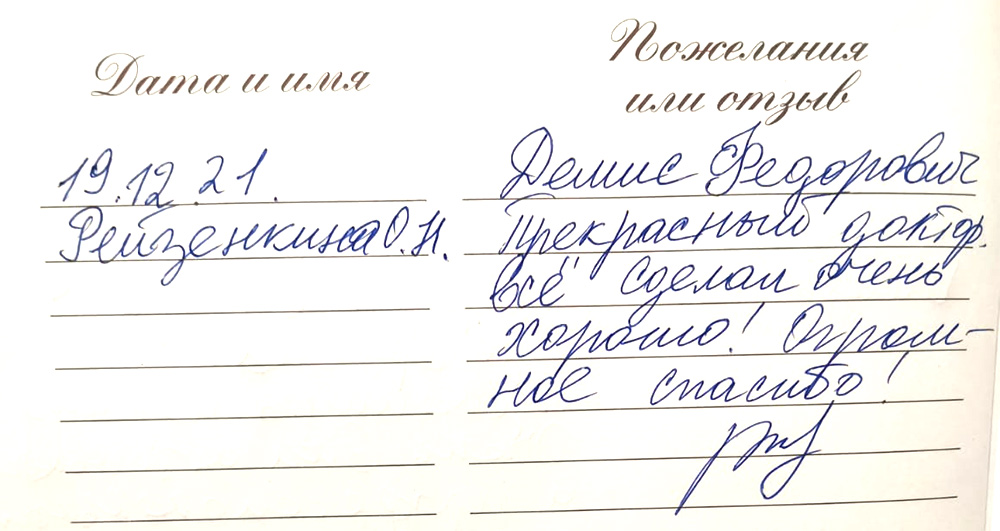 Дата и имя
Пожелания
или отзыв
19.12.21.
Рейзенкина О.Н.
Демис Федорович
Прекрасный доктор.
всё сделал очень
хорошо! Огром-
ное спасибо!